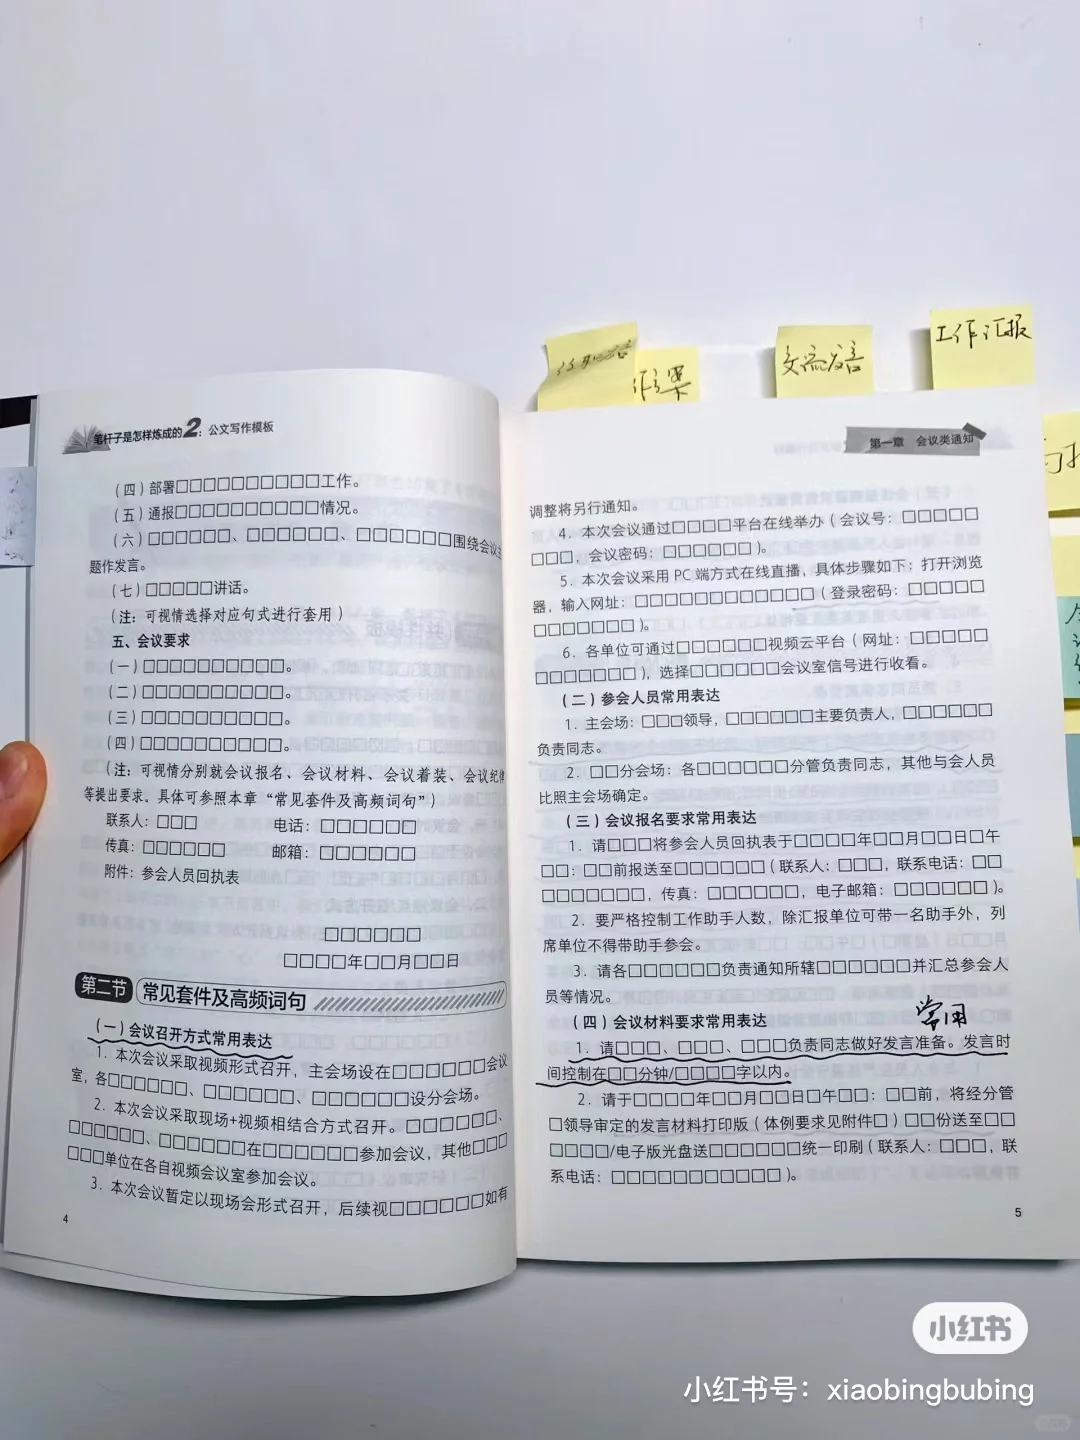 工作汇报
交流发言
笔杆子是怎样炼成的2：公文写作模板
（四）部署□□□□□□□□□□工作。
（五）通报□□□□□□□□□□情况。
（六）□□□□□□、□□□□□□、□□□□□□□围绕会议主
题作发言。
（七）□□□□□讲话。
（注：可视情选择对应句式进行套用）
五、会议要求
（一）□□□□□□□□□□。
（二）□□□□□□□□□□。
（三）□□□□□□□□□□。
（四）□□□□□□□□□□。
（注：可视情分别就会议报名、会议材料、会议着装、会议纪律
等提出要求。具体可参照本章“常见套件及高频词句”）
联系人：□□□ 电话：□□□□□□□
传真：□□□□□□ 邮箱：□□□□□□□
附件：参会人员回执表
□□□□□□□
□□□□年□□月□□日
第二节 常见套件及高频词句
（一）会议召开方式常用表达
1. 本次会议采取视频形式召开，主会场设在□□□□□□□会议
室，各□□□□□□、□□□□□□□、□□□□□□□设分会场。
2. 本次会议采取现场+视频相结合方式召开。□□□□□□□、
□□□□□□、□□□□□□□在□□□□□□□参加会议，其他□□□
□□□单位在各自视频会议室参加会议。
3. 本次会议暂定以现场会形式召开，后续视□□□□□□□如有
4
第一章 会议类通知
调整将另行通知。
4. 本次会议通过□□□□平台在线举办（会议号：□□□□□
□□□，会议密码：□□□□□□）。
5. 本次会议采用 PC 端方式在线直播，具体步骤如下：打开浏览
器，输入网址：□□□□□□□□□□□□（登录密码：□□□□□
□□□□□□□）。
6. 各单位可通过□□□□□□视频云平台（网址：□□□□□
□□□□□□□），选择□□□□□□会议室信号进行收看。
（二）参会人员常用表达
1. 主会场：□□□领导，□□□□□□主要负责人，□□□□□□
负责同志。
2. □□分会场：各□□□□□□分管负责同志，其他与会人员
比照主会场确定。
（三）会议报名要求常用表达
1. 请□□□将参会人员回执表于□□□□年□□月□□日□午
□□：□□前报送至□□□□□□（联系人：□□□，联系电话：□□
□□□□□□□，传真：□□□□□□，电子邮箱：□□□□□□）。
2. 要严格控制工作助手人数，除汇报单位可带一名助手外，列
席单位不得带助手参会。
3. 请各□□□□□□负责通知所辖□□□□□□并汇总参会人
员等情况。
（四）会议材料要求常用表达
常用
1. 请□□□、□□□、□□□负责同志做好发言准备。发言时
间控制在□□分钟/□□□□字以内。
2. 请于□□□□年□□月□□日□午□□：□□前，将经分管
□领导审定的发言材料打印版（体例要求见附件□）□□份送至□□
□□□□/电子版光盘送□□□□□□统一印刷（联系人：□□□，联
系电话：□□□□□□□□□□□）。
5
小红书
小红书号：xiaobingbubing